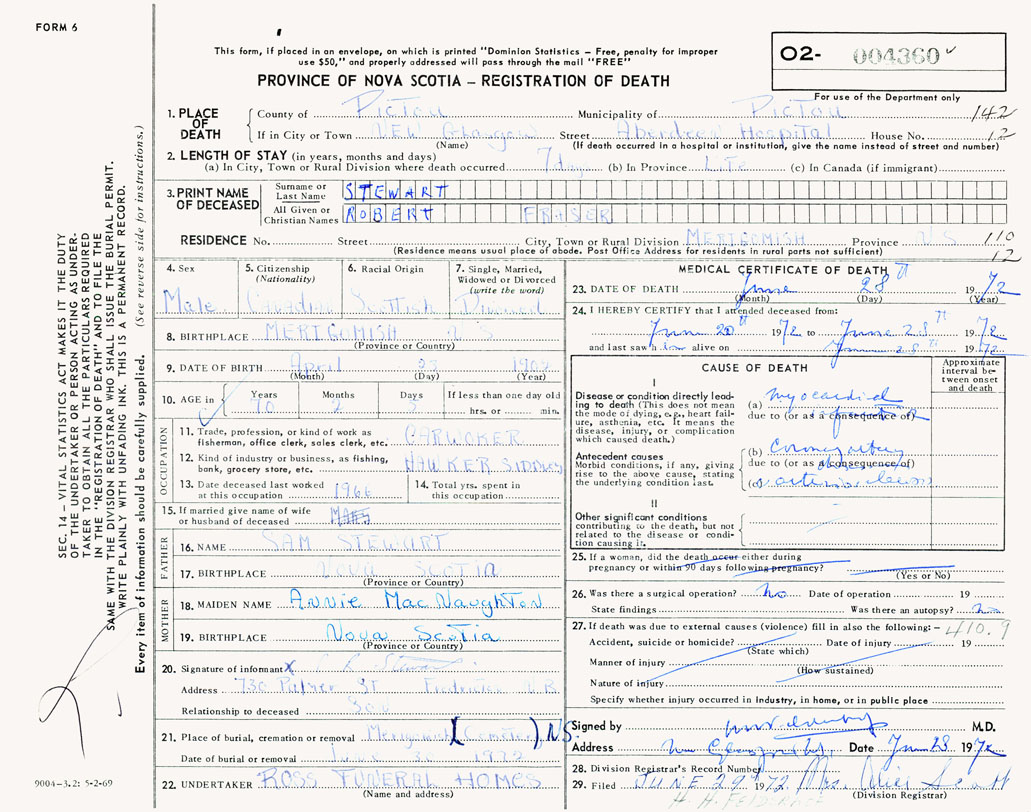 FORM 6
This form, if placed in an envelope, on which is printed "Dominion Statistics – Free, penalty for improper
use $50," and properly addressed will pass through the mail "FREE"
PROVINCE OF NOVA SCOTIA – REGISTRATION OF DEATH
O2- 004360
For use of the Department only
1. PLACE OF DEATH County of PICTOU Municipality of PICTOU 142
If in City or Town NEW Glasgow Street Aberdeen Hospital House No. 12
(Name) (If death occurred in a hospital or institution, give the name instead of street and number)
2. LENGTH OF STAY (in years, months and days)
(a) In City, Town or Rural Division where death occurred 7 days (b) In Province Life (c) In Canada (if immigrant)
3. PRINT NAME OF DECEASED Surname or Last Name STEWART
All Given or Christian Names ROBERT FRASER
RESIDENCE No. Street City, Town or Rural Division MERIGOMISH Province N.S 110
(Residence means usual place of abode. Post Office Address for residents in rural parts not sufficient) 12
4. Sex 5. Citizenship (Nationality) 6. Racial Origin 7. Single, Married, Widowed or Divorced (write the word)
Male Canadian Scottish Divorced
8. BIRTHPLACE MERIGOMISH N S
(Province or Country)
9. DATE OF BIRTH April
(Month) (Day) (Year)
10. AGE in Years Months Days If less than one day old
70 2 hrs. or min.
OCCUPATION
11. Trade, profession, or kind of work as fisherman, office clerk, sales clerk, etc. CARWOKER
12. Kind of industry or business, as fishing, bank, grocery store, etc. HAWKER SIDDLEY
13. Date deceased last worked at this occupation 1966 14. Total yrs. spent in this occupation
15. If married give name of wife or husband of deceased
FATHER
16. NAME SAM STEWART
17. BIRTHPLACE Nova Scotia
(Province or Country)
MOTHER
18. MAIDEN NAME Annie MacNaughton
19. BIRTHPLACE Nova Scotia
(Province or Country)
20. Signature of informant X
Address 730 St Fredericton N.B.
Relationship to deceased Son
21. Place of burial, cremation or removal Merigomish (Cemetery), N.S.
Date of burial or removal 1972
22. UNDERTAKER ROSS FUNERAL HOMES
(Name and address)
MEDICAL CERTIFICATE OF DEATH
23. DATE OF DEATH June 28th 1972
(Month) (Day) (Year)
24. I HEREBY CERTIFY that I attended deceased from:
June 20th 1972 to June 28th 1972
and last saw him alive on June 28th 1972
CAUSE OF DEATH
Approximate interval between onset and death
I
Disease or condition directly leading to death (This does not mean the mode of dying, e.g., heart failure, asthenia, etc. It means the disease, injury, or complication which caused death.)
(a) myocardial infarction
due to (or as a consequence of)
Antecedent causes
Morbid conditions, if any, giving rise to the above cause, stating the underlying condition last.
(b) coronary artery
due to (or as a consequence of)
(c) arteriosclerosis
II
Other significant conditions
contributing to the death, but not related to the disease or condition causing it.
25. If a woman, did the death occur either during
pregnancy or within 90 days following pregnancy?
(Yes or No)
26. Was there a surgical operation? no Date of operation 19
State findings Was there an autopsy? no
27. If death was due to external causes (violence) fill in also the following:– 410.9
Accident, suicide or homicide? Date of injury 19
(State which)
Manner of injury
(How sustained)
Nature of injury
Specify whether injury occurred in industry, in home, or in public place
Signed by M.D.
Address New Glasgow Date June 28 1972
28. Division Registrar's Record Number
29. Filed JUNE 29th 1972 Mrs. Alice Scott
(Division Registrar)
SEC. 14 – VITAL STATISTICS ACT MAKES IT THE DUTY
OF THE UNDERTAKER OR PERSON ACTING AS UNDER-
TAKER TO OBTAIN ALL THE PARTICULARS REQUIRED
IN THE "REGISTRATION OF DEATH" AND TO FILE THE
SAME WITH THE DIVISION REGISTRAR WHO SHALL ISSUE THE BURIAL PERMIT.
WRITE PLAINLY WITH UNFADING INK. THIS IS A PERMANENT RECORD.
Every item of information should be carefully supplied. (See reverse side for instructions.)
9004-3.2: 5-2-69